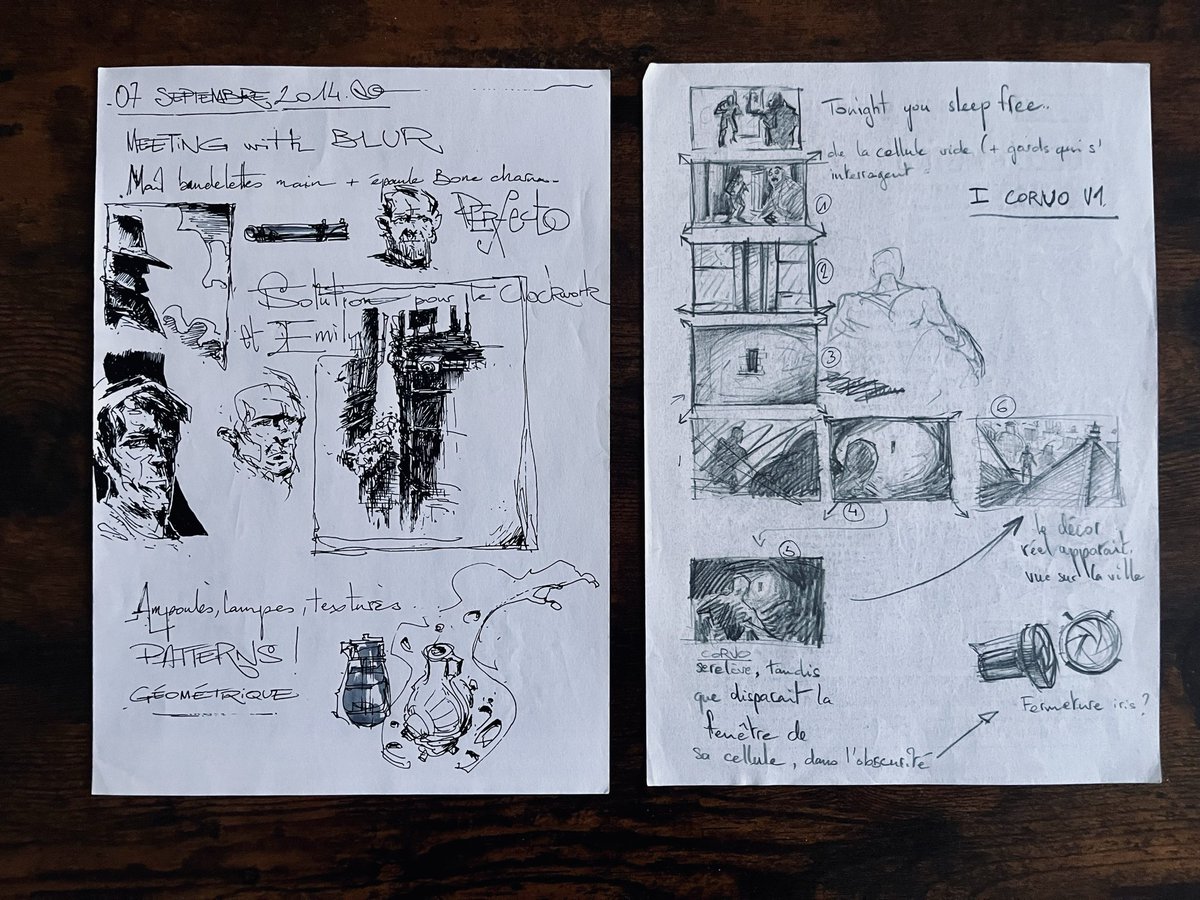 07 SEPTEMBRE 2014.
MEETING with BLUR
Mail bandelettes main + épaule Bone charm
PERfecto
Solution pour le Clockwork
et Emily
Ampoules, lampes, textures...
PATTERNS!
GÉOMÉTRIQUE
Tonight you sleep free..
de la cellule vide (+ gards qui s'
interragent
I CORVO V1.
1
2
3
6
4
le décor
réel apparait.
vue sur la ville
5
CORVO
se relève, tandis
que disparait la
fenêtre de
sa cellule, dans l'obscurité
Fermeture iris?